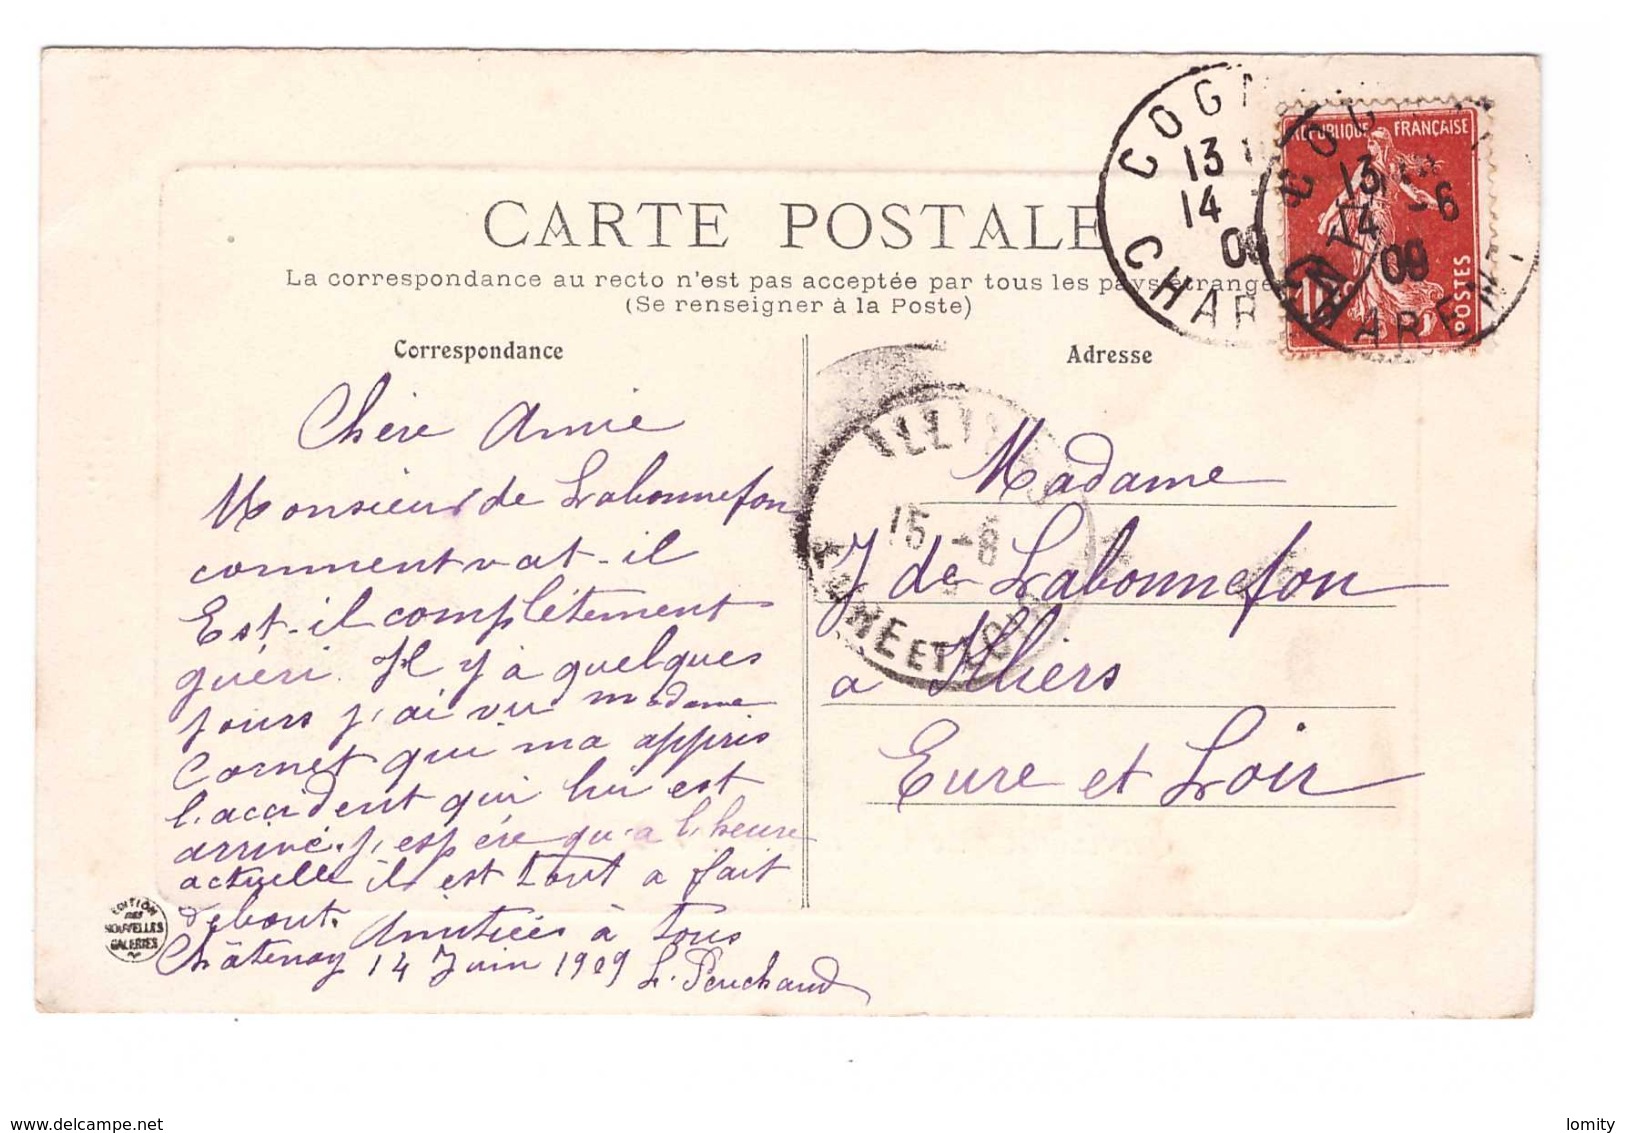 CARTE POSTALE
La correspondance au recto n'est pas acceptée par tous les pays étrange
(Se renseigner à la Poste)
Correspondance
Adresse
Chère Amie
Monsieur de Labonnefon
comment vat-il
Est-il complètement
guéri. Il y à quelques
jours j'ai vu madame
Cornet qui ma appris
l'accident qui lui est
arrivé. j'espére qu'a l'heure
actuelle il est tout a fait
debout. Amitiées à tous
Châtenay 14 Juin 1909 L. Penchaud
Madame
J de Labonnefon
a Illiers
Eure et Loir
COGN
13
14
09
CHAR
REPUBLIQUE FRANÇAISE
POSTES
10
13
14 -6
09
ILLIERS
15 -6
9
EURE ET LOIR
EDITION
DES
NOUVELLES
GALERIES
www.delcampe.net
lomity